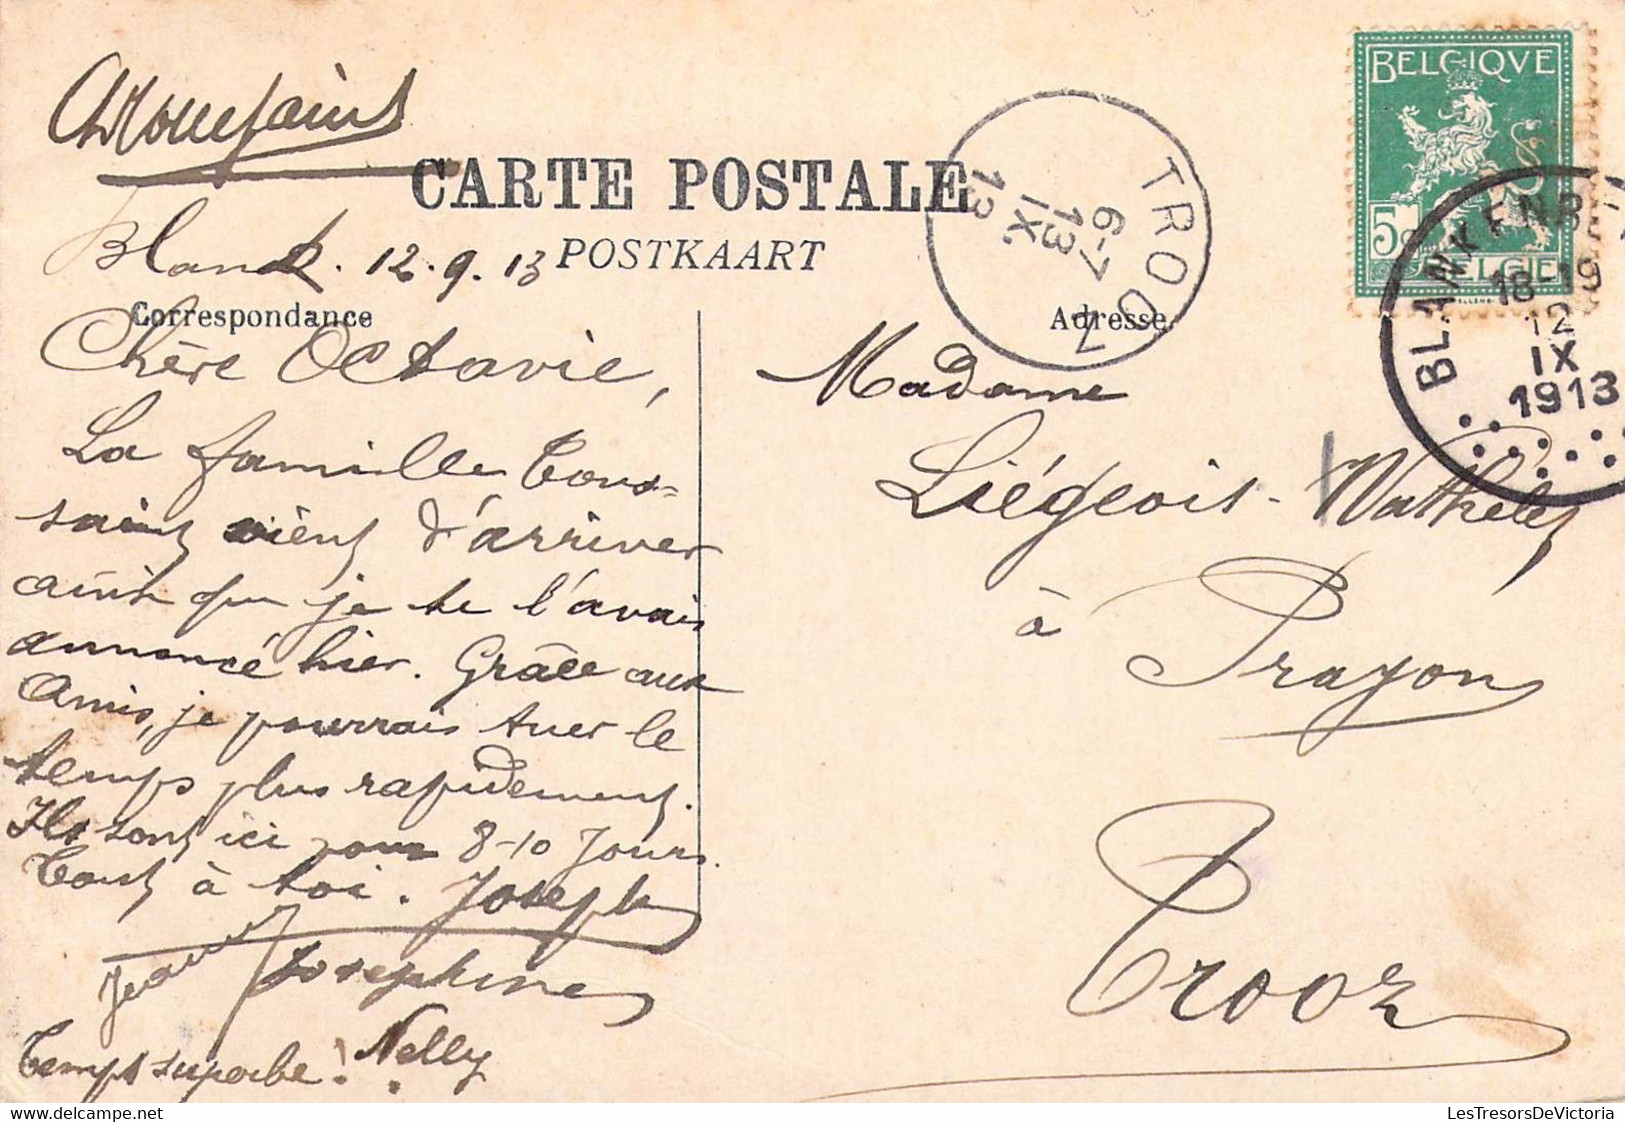 CARTE POSTALE
POSTKAART
Correspondance
Adresse
Blank. 12.9.13
Chère Octavie,
La famille Tous-
saint vient d'arriver
ainsi que je te l'avais
annoncé hier. Grâce aux
Amis, je pourrais tuer le
temps plus rapidement.
Ils sont ici pour 8-10 Jours.
Tout à toi. Joseph
Joséphine
Jeanne
Nelly
Temps superbe!
Madame
Liégeois-Wathelet
à Prayon
Trooz
BELGIQVE
5c
BELGIË
TROOZ
6-7
13
IX.
13
BLANKENBE
18-19
12
IX
1913
LesTresorsDeVictoria.com